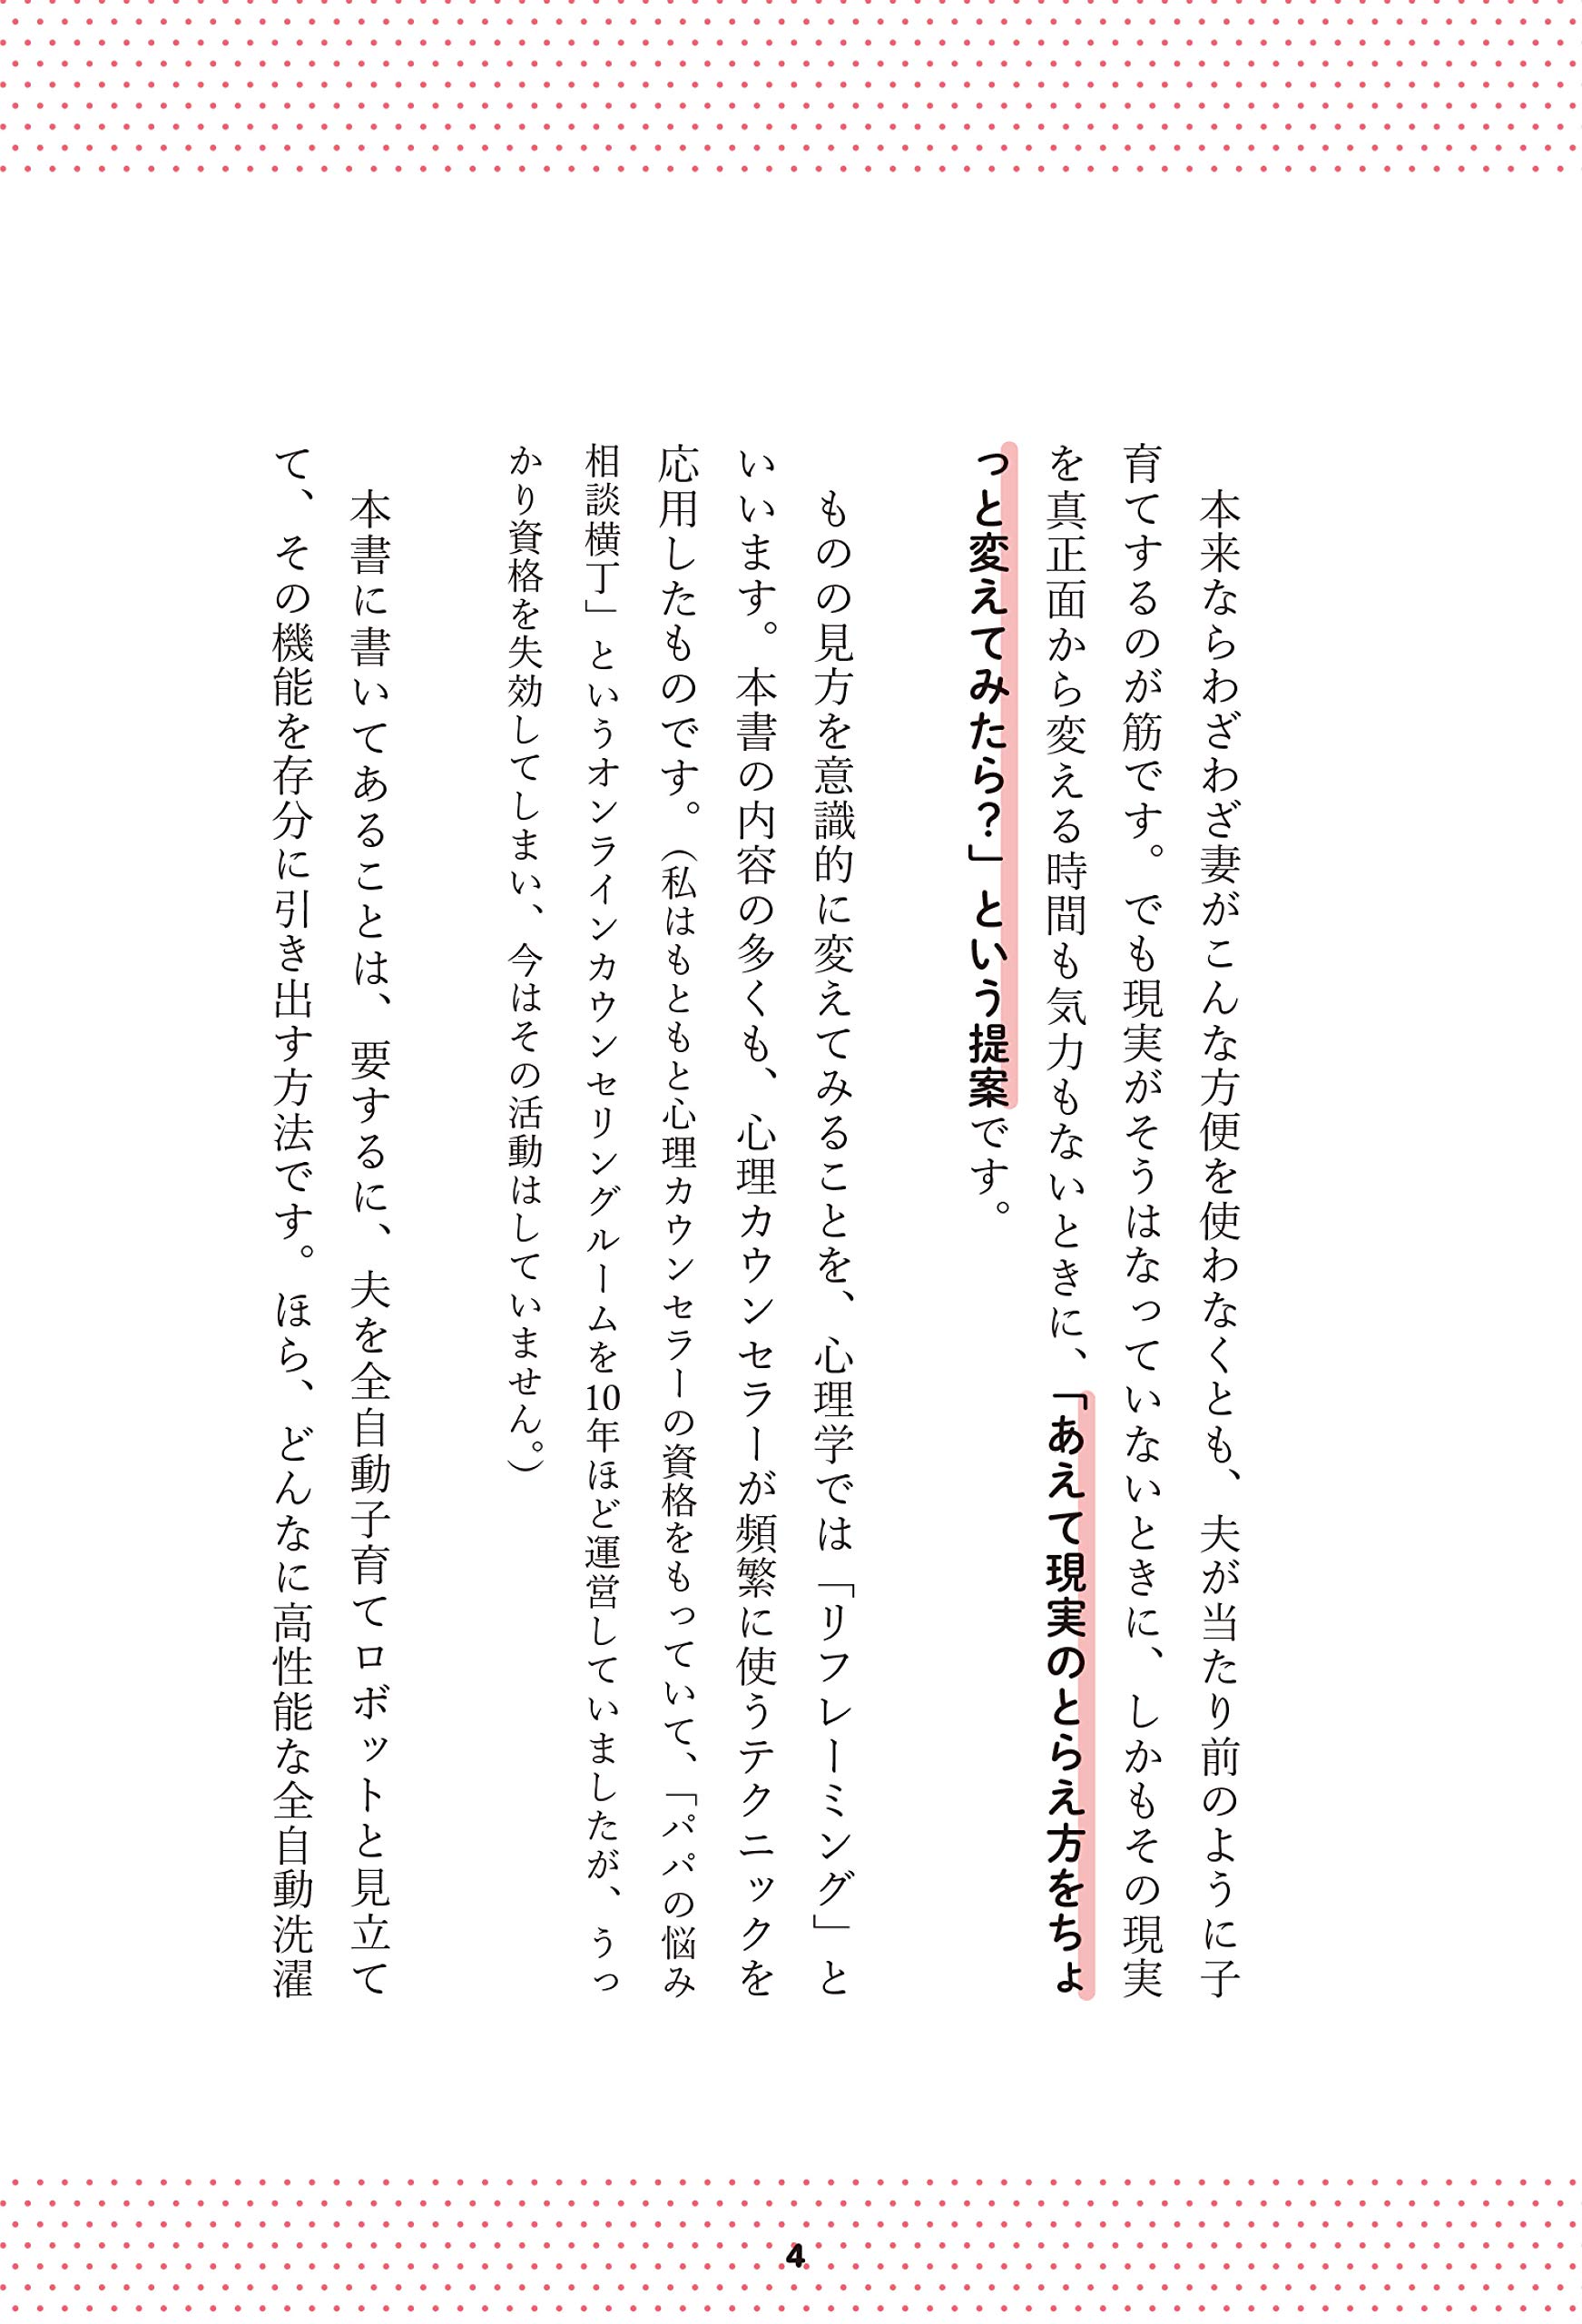 本来ならわざわざ妻がこんな方便を使わなくとも、夫が当たり前のように子
育てするのが筋です。でも現実がそうはなっていないときに、しかもその現実
を真正面から変える時間も気力もないときに、「あえて現実のとらえ方をちょ
っと変えてみたら？」という提案です。
ものの見方を意識的に変えてみることを、心理学では「リフレーミング」と
いいます。本書の内容の多くも、心理カウンセラーが頻繁に使うテクニックを
応用したものです。（私はもともと心理カウンセラーの資格をもっていて、「パパの悩み
相談横丁」というオンラインカウンセリングルームを10年ほど運営していましたが、うっ
かり資格を失効してしまい、今はその活動はしていません。）
本書に書いてあることは、要するに、夫を全自動子育てロボットと見立て
て、その機能を存分に引き出す方法です。ほら、どんなに高性能な全自動洗濯
4